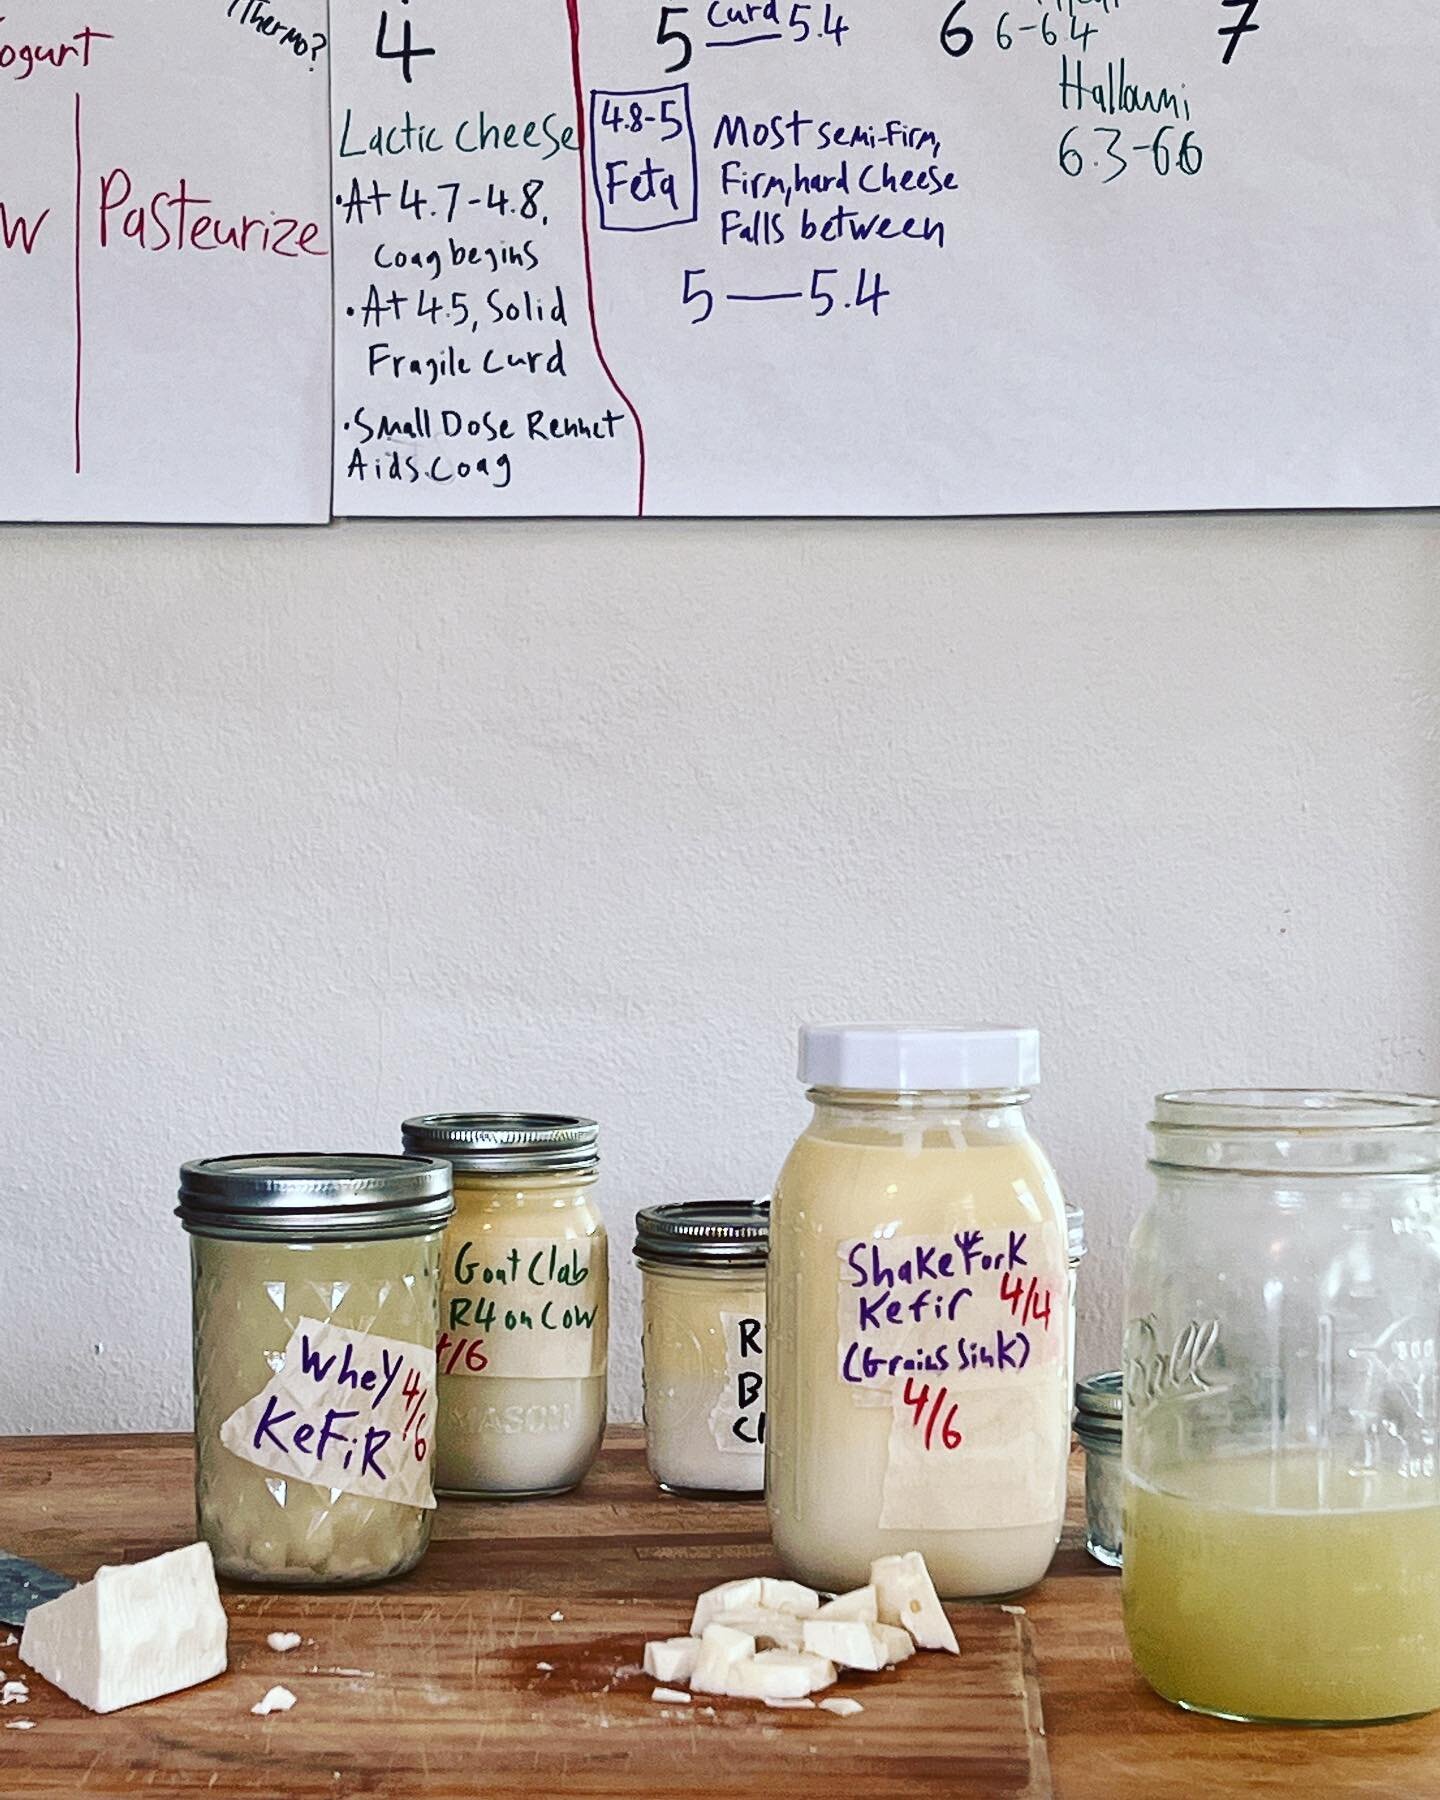 (Thermo?
ogurt
w
Pasteurize
4
Lactic cheese
•At 4.7-4.8,
Coag begins
•At 4.5, Solid
Fragile Curd
•Small Dose Rennet
Aids Coag
5 Curd 5.4
4.8-5
Feta
Most semi-Firm,
Firm, hard Cheese
Falls between
5—5.4
6 6-6.4
Halloumi
6.3-6.6
7
Whey 4/6
KeFiR
Goat Clab
R4 on Cow
4/6
MASON
R
B
Cl
Shake Fork
Kefir 4/4
(Grains Sink)
4/6
Ball